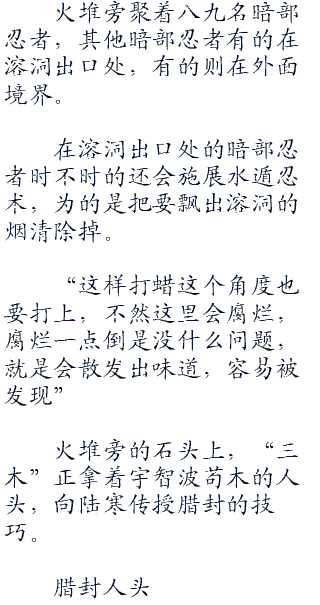 火堆旁聚着八九名暗部
忍者，其他暗部忍者有的在
溶洞出口处，有的则在外面
境界。
在溶洞出口处的暗部忍
者时不时的还会施展水遁忍
术，为的是把要飘出溶洞的
烟清除掉。
“这样打蜡这个角度也
要打上，不然这里会腐烂，
腐烂一点倒是没什么问题，
就是会散发出味道，容易被
发现”
火堆旁的石头上，“三
木”正拿着宇智波苟木的人
头，向陆寒传授腊封的技
巧。
腊封人头